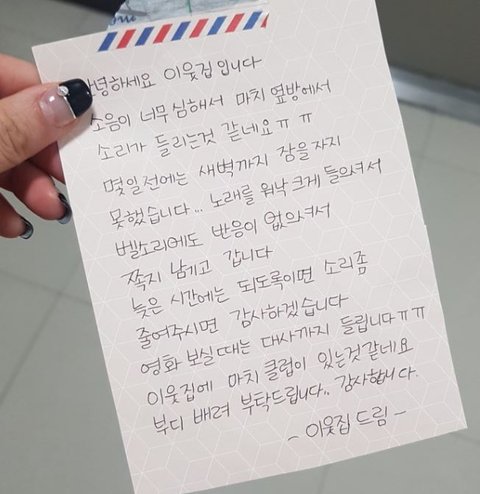 안녕하세요 이웃집입니다
소음이 너무 심해서 마치 옆방에서
소리가 들리는것 같네요ㅠㅠ
몇일전에는 새벽까지 잠을 자지
못했습니다... 노래를 워낙 크게 들으셔서
벨소리에도 반응이 없으셔서
쪽지 남기고 갑니다
늦은 시간에는 되도록이면 소리좀
줄여주시면 감사하겠습니다
영화 보실때는 대사까지 들립니다ㅠㅠ
이웃집에 마치 클럽이 있는것같네요
부디 배려 부탁드립니다.. 감사합니다.
- 이웃집 드림 -